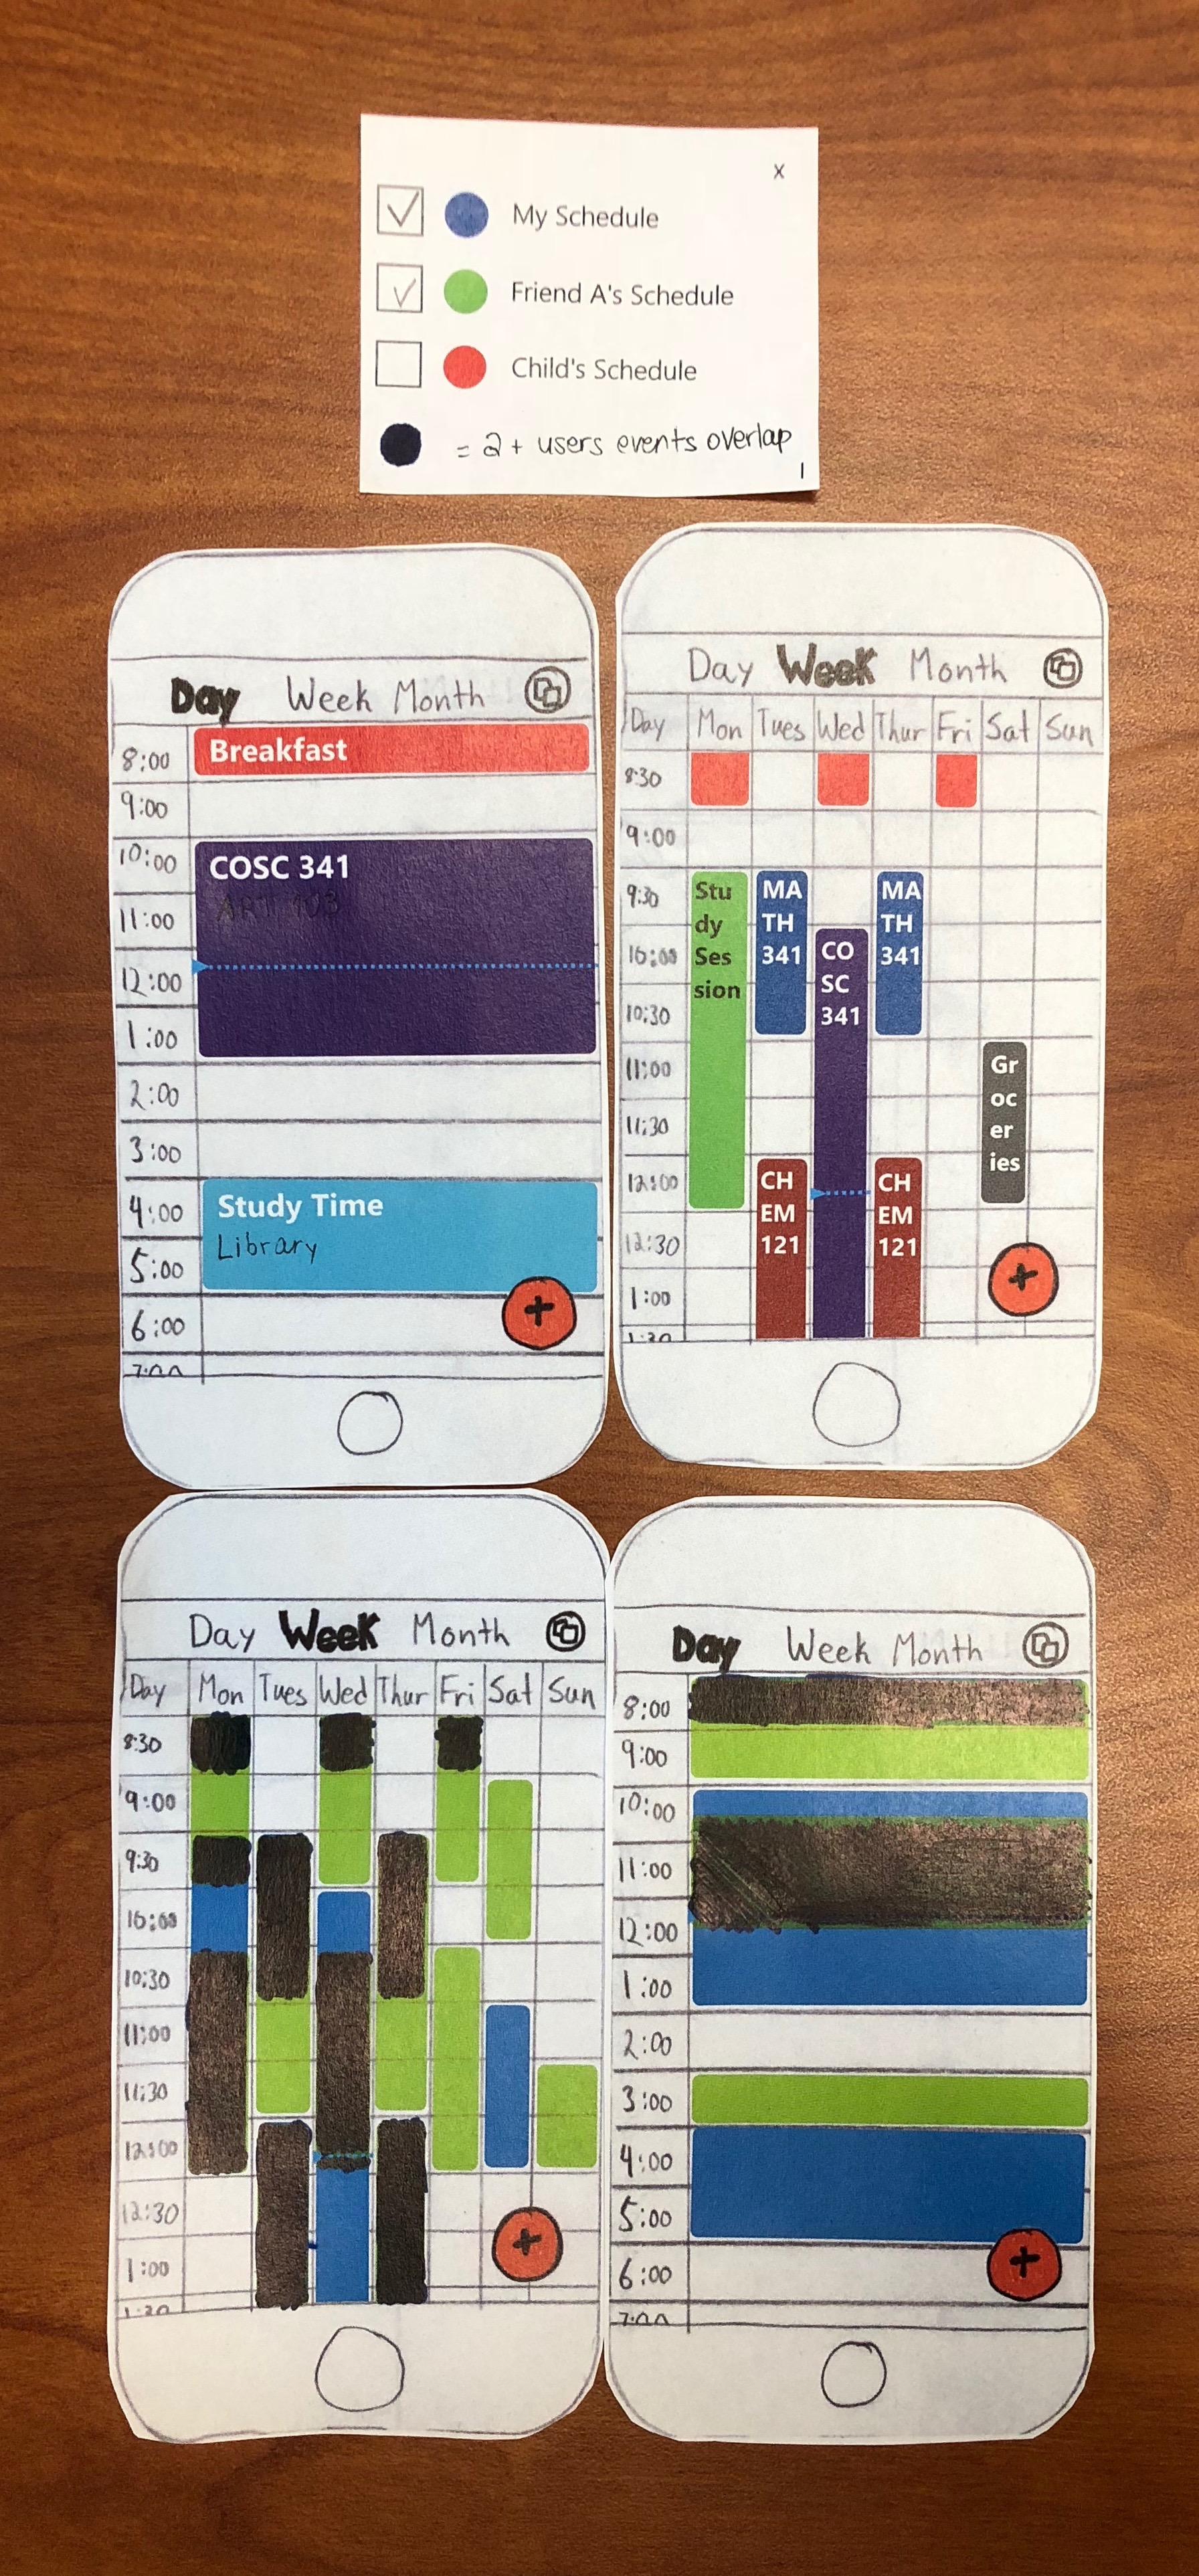 x
My Schedule
Friend A's Schedule
Child's Schedule
= 2+ users events overlap
Day Week Month
8:00 Breakfast
9:00
10:00 COSC 341
ART 103
11:00
12:00
1:00
2:00
3:00
4:00 Study Time
Library
5:00
6:00
7:00
+
Day Week Month
Day Mon Tues Wed Thur Fri Sat Sun
8:30
9:00
9:30
10:00
10:30
11:00
11:30
12:00
12:30
1:00
1:30
Stu
dy
Ses
sion
MA
TH
341
CH
EM
121
CO
SC
341
MA
TH
341
CH
EM
121
Gr
oc
er
ies
+
Day Week Month
Day Mon Tues Wed Thur Fri Sat Sun
8:30
9:00
9:30
10:00
10:30
11:00
11:30
12:00
12:30
1:00
1:30
+
Day Week Month
8:00
9:00
10:00
11:00
12:00
1:00
2:00
3:00
4:00
5:00
6:00
7:00
+